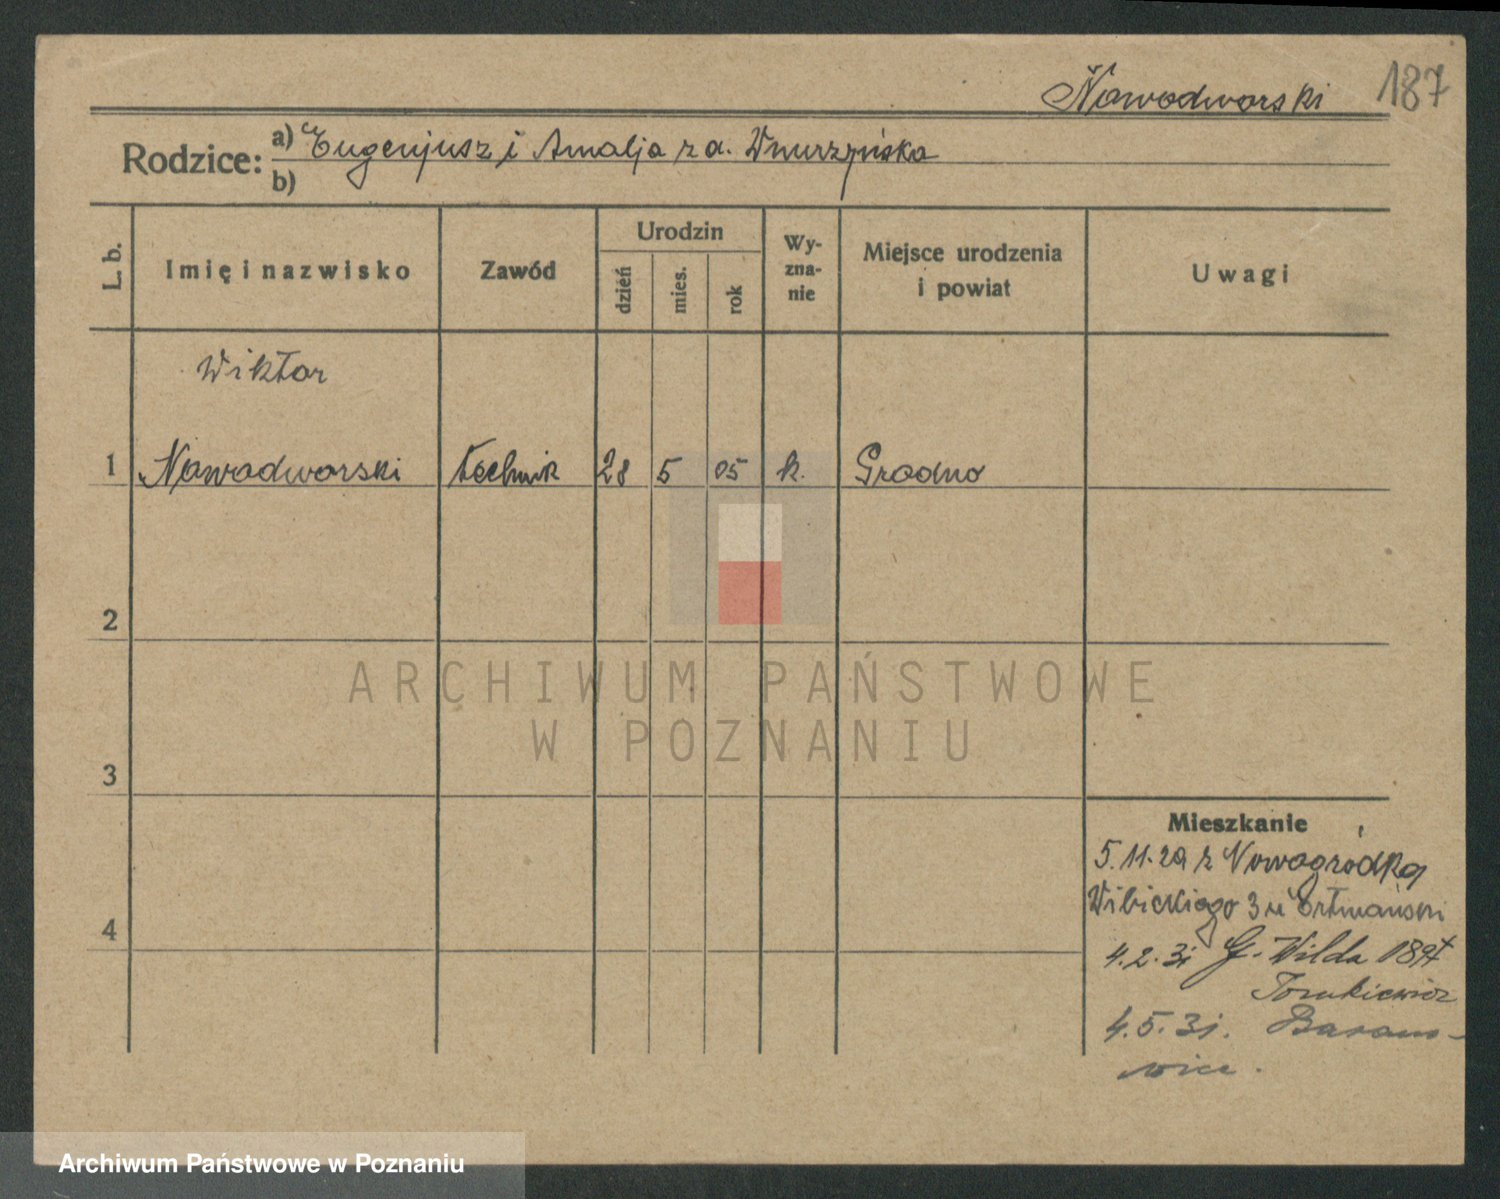 Nowodworski 187
Rodzice: a) Eugenjusz i Amalja z d.
b)
L. b. Imię i nazwisko Zawód Urodzin dzień mies. rok Wy-zna-nie Miejsce urodzenia i powiat Uwagi
Wiktor
1 Nowodworski technik 28 5 05 k. Grodno
2
3
4
Mieszkanie
5.11.29 z Nowogródka
Wibickiego 3 u Ertmański
4.2.31 G. Wilda
4.5.31. Barano-
wice.
ARCHIWUM PAŃSTWOWE
W POZNANIU
Archiwum Państwowe w Poznaniu